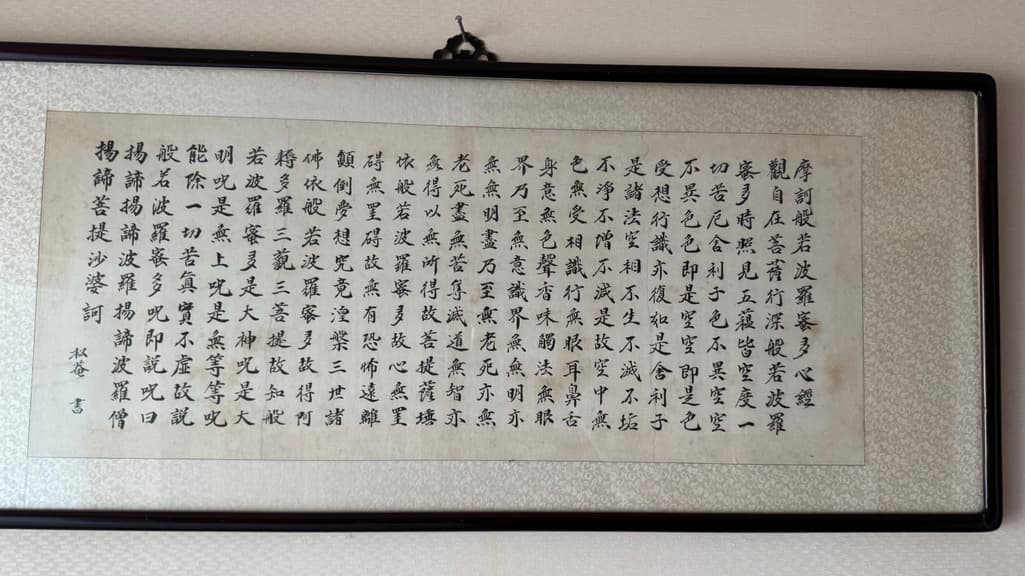 摩訶般若波羅蜜多心經
觀自在菩薩行深般若波羅
蜜多時照見五蘊皆空度一
切苦厄舍利子色不異空空
不異色色即是空空即是色
受想行識亦復如是舍利子
是諸法空相不生不滅不垢
不淨不增不減是故空中無
色無受相識行無眼耳鼻舌
身意無色聲香味觸法無眼
界乃至無意識界無無明亦
無無明盡乃至無老死亦無
老死盡無苦集滅道無智亦
無得以無所得故菩提薩埵
依般若波羅蜜多故心無罣
碍無罣碍故無有恐怖遠離
顛倒夢想究竟涅槃三世諸
佛依般若波羅蜜多故得阿
耨多羅三藐三菩提故知般
若波羅蜜多是大神呪是大
明呪是無上呪是無等等呪
能除一切苦眞實不虛故說
般若波羅蜜多呪即説呪曰
揚諦揚諦波羅揚諦波羅僧
揚諦菩提沙婆訶
松菴 書